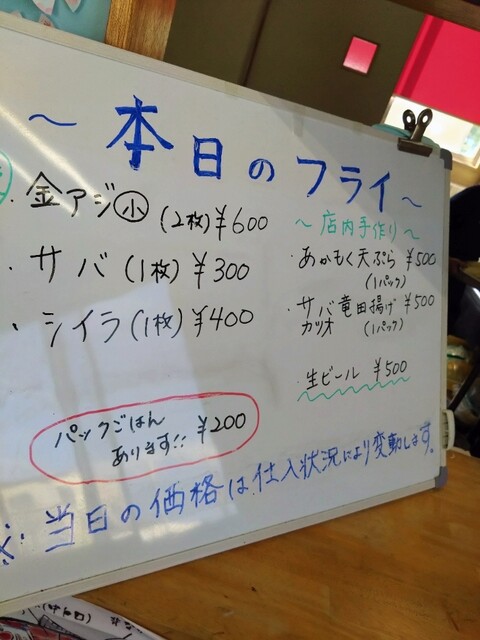 ～本日のフライ～
・金アジ㊙小 (2枚) ¥600
・サバ (1枚) ¥300
・シイラ (1枚) ¥400
～店内手作り～
・あかもく天ぷら ¥500
(1パック)
・サバ カツオ 竜田揚げ ¥500
(1パック)
・生ビール ¥500
パックごはん
あります!! ¥200
※当日の価格は仕入状況により変動します。